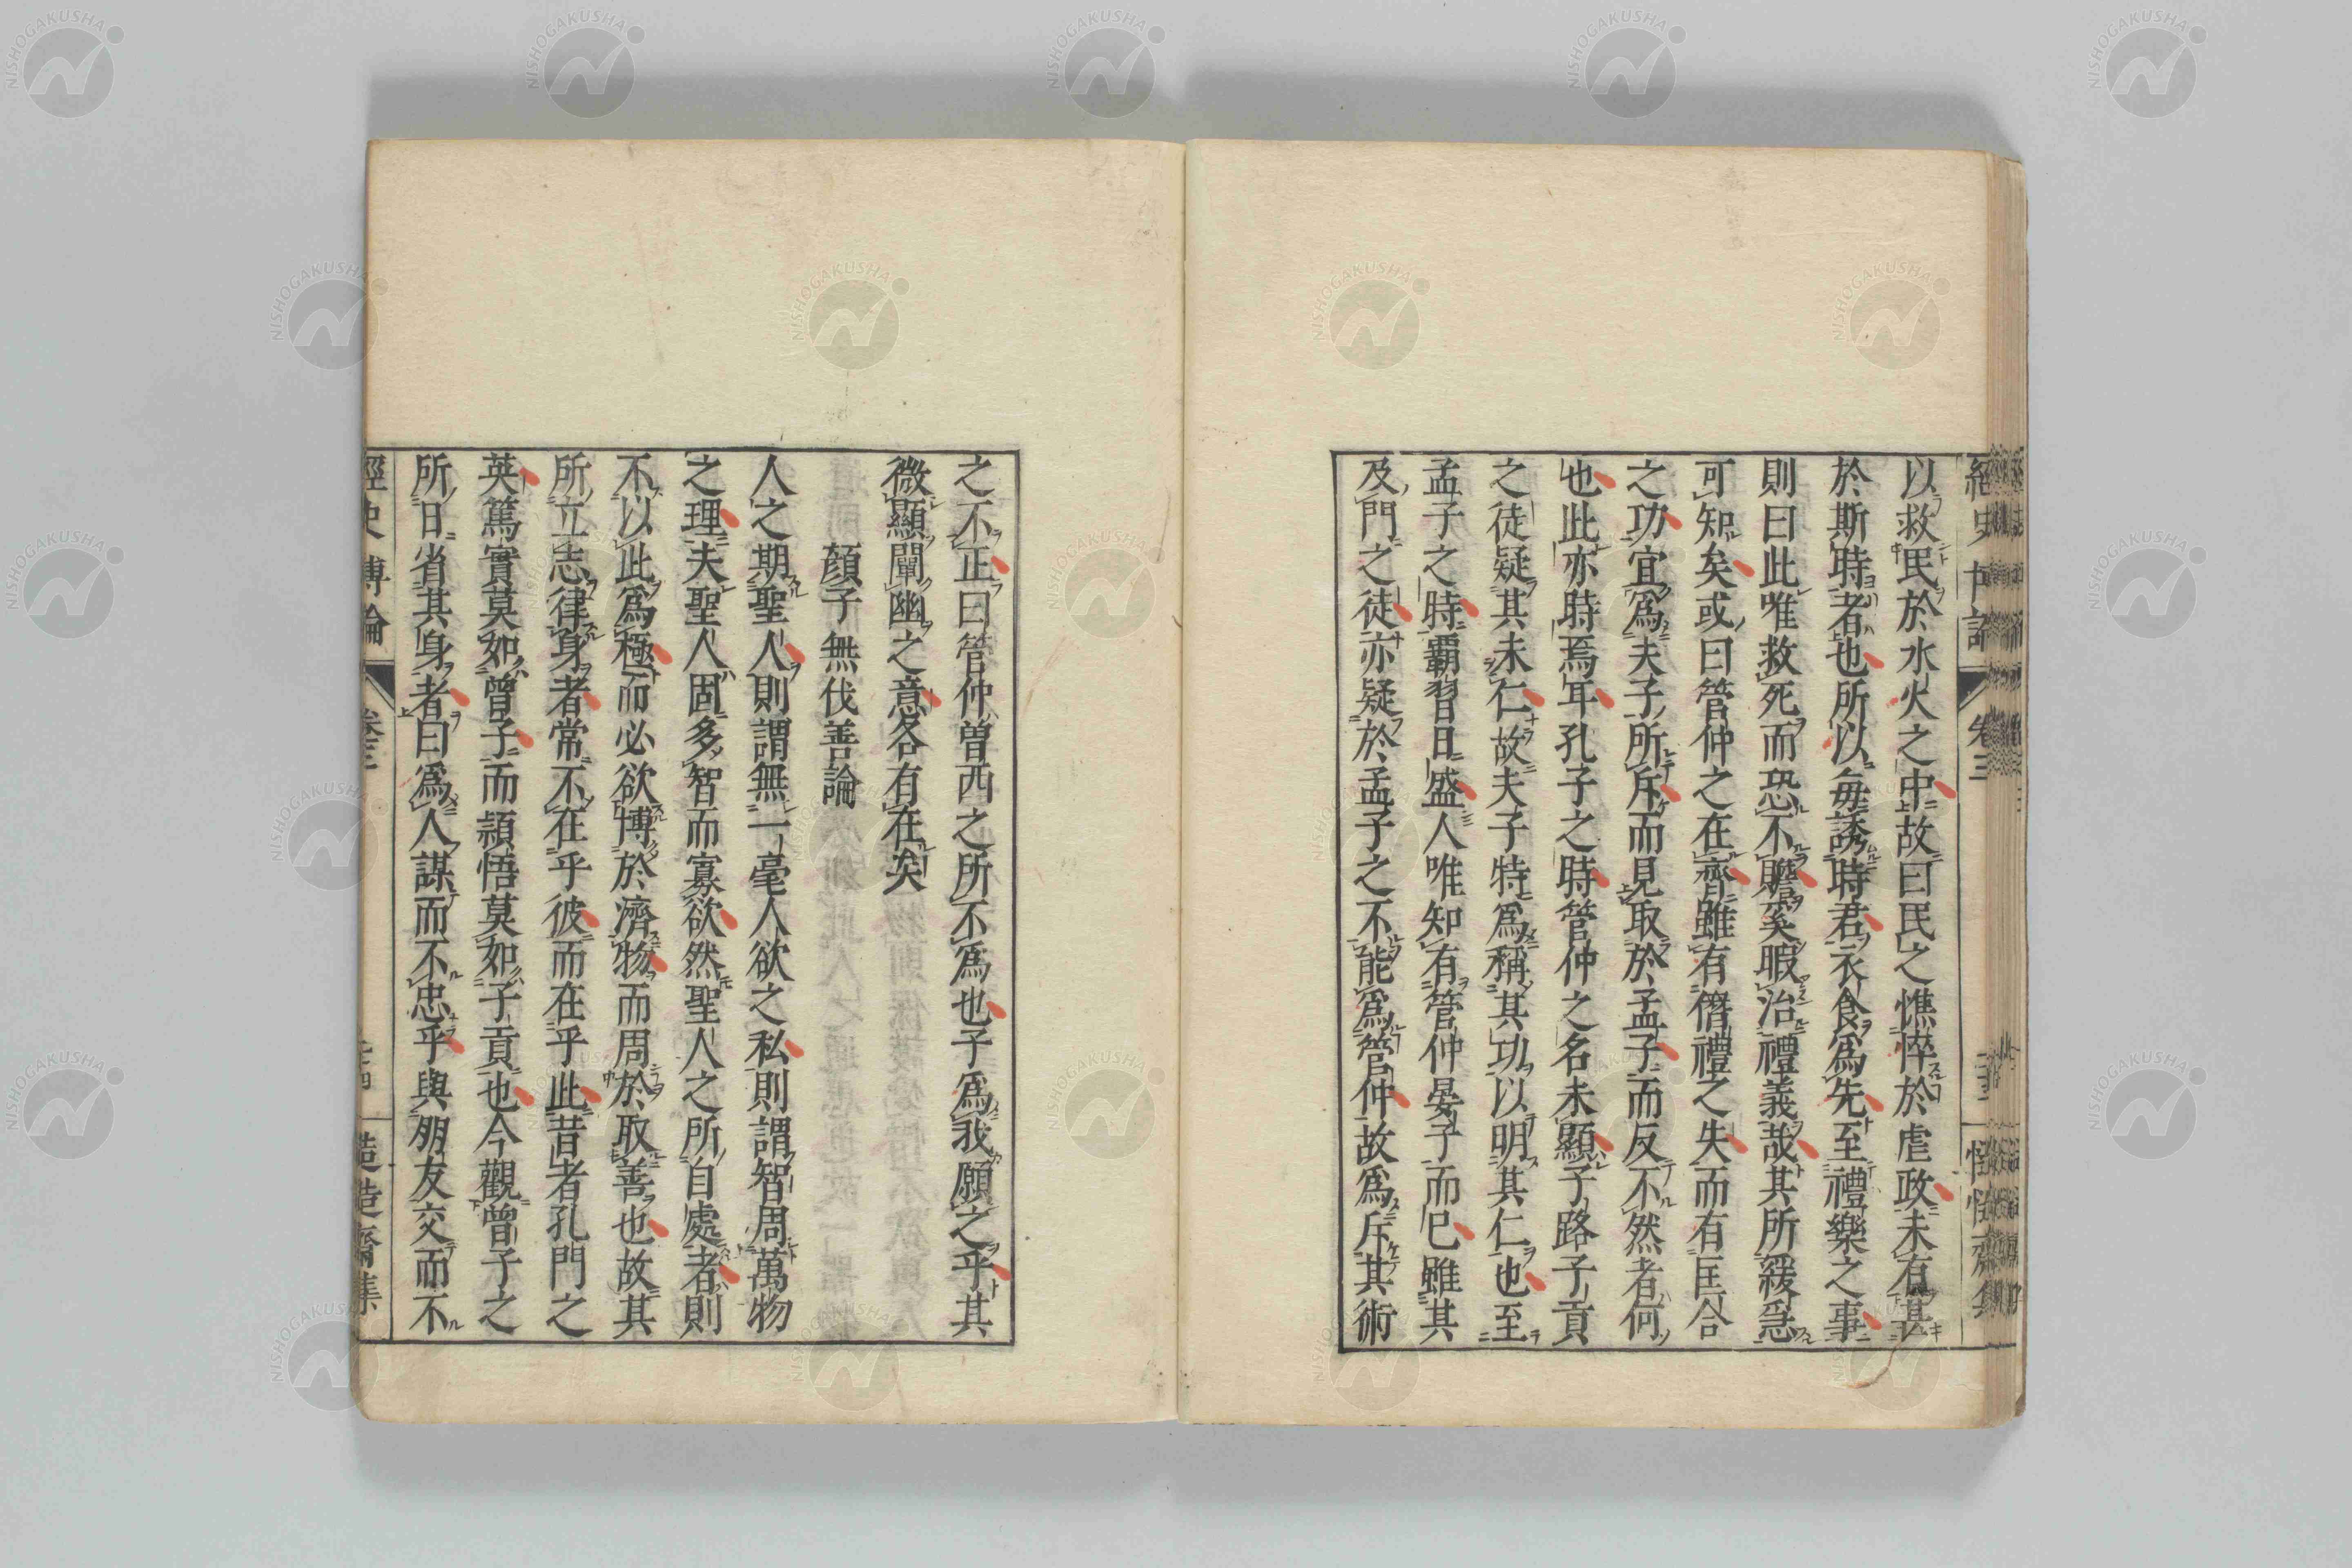 以救民於水火之中故曰民之憔悴於虐政未有甚
於斯時者也所以每誘時君衣食爲先至禮樂之事
則曰此唯救死而恐不贍奚暇治禮義哉其所緩急
可知矣或曰管仲之在齊雖有僭禮之失而有匡合
之功宜爲夫子所斥而見取於孟子而反不然者何
也此亦時焉耳孔子之時管仲之名未顯子路子貢
之徒疑其未仁故夫子特爲稱其功以明其仁也至
孟子之時霸習日盛人唯知有管仲晏子而已雖其
及門之徒亦疑於孟子之不能爲管仲故爲斥其術
之不正曰管仲曽西之所不爲也子爲我願之乎其
微顯闡幽之意各有在矣
顏子無伐善論
人之期聖人則謂無一毫人欲之私則謂智周萬物
之理夫聖人固多智而寡欲然聖人之所自處者則
不以此爲極而必欲博於濟物而周於取善也故其
所立志律身者常不在乎彼而在乎此昔者孔門之
英篤實莫如曾子而穎悟莫如子貢也今觀曾子之
所日省其身者曰爲人謀而不忠乎與朋友交而不
經史博論 卷三